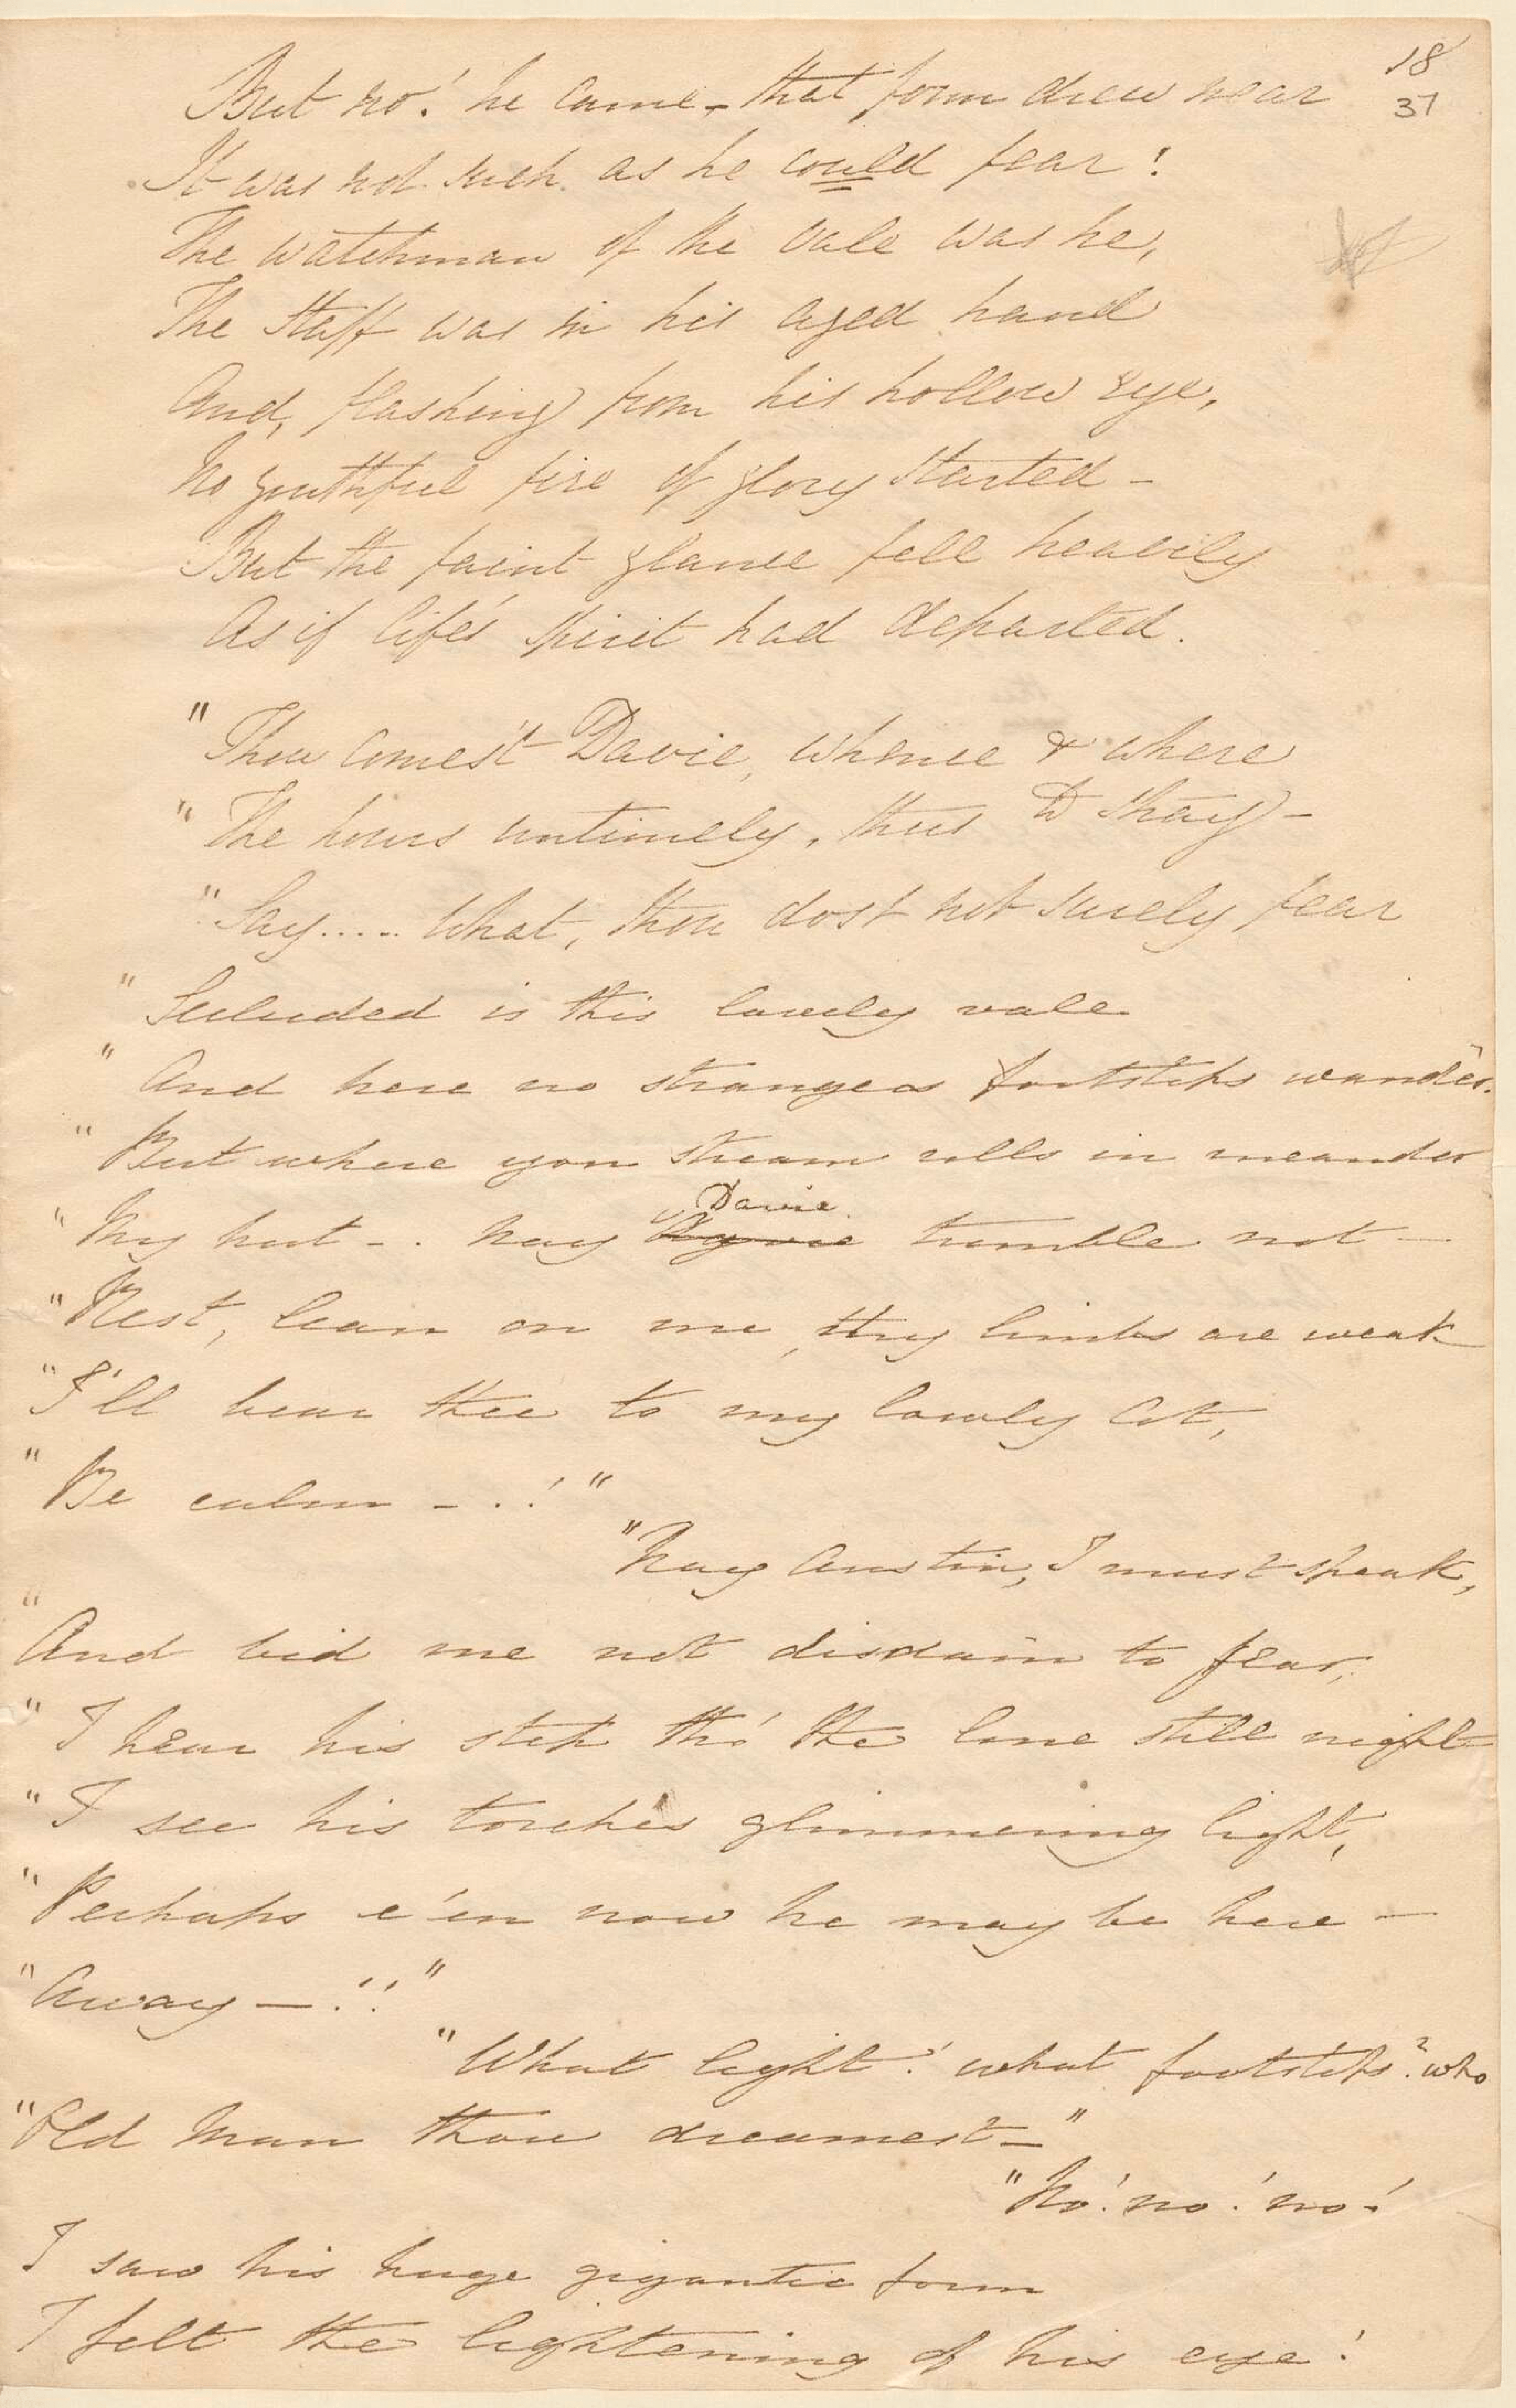 18
37
But no! he came - that form drew near
It was not such as he could fear!
The watchman of the vale was he,
The staff was in his aged hand
And, flashing from his hollow eye,
No youthful fire of glory started -
But the faint glance fell heavily
As if life's spirit had departed.
"Thou comes't Davie, whence & where
"The hours untimely, thus to stray -
"Say..... What, thou dost not surely fear
"Secluded is this lovely vale
"And here no strangers footsteps wander.
"But where yon stream rolls in meander
Davie
"My hut - . Nay tremble not -
"Rest, lean on me, thy limbs are weak
"I'll bear thee to my lowly cot,
"Be calm - . !"
"Nay Austin, I must speak,
"And bid me not disdain to fear,
"I hear his step thro' the lone still night
"I see his torches glimmering light,
"Perhaps e'en now he may be here -
"Away - !!"
"What light! what footsteps? who
"Old Man thou dreamest -"
"No! no! no!
I saw his huge gigantic form
I felt the lightening of his eye!